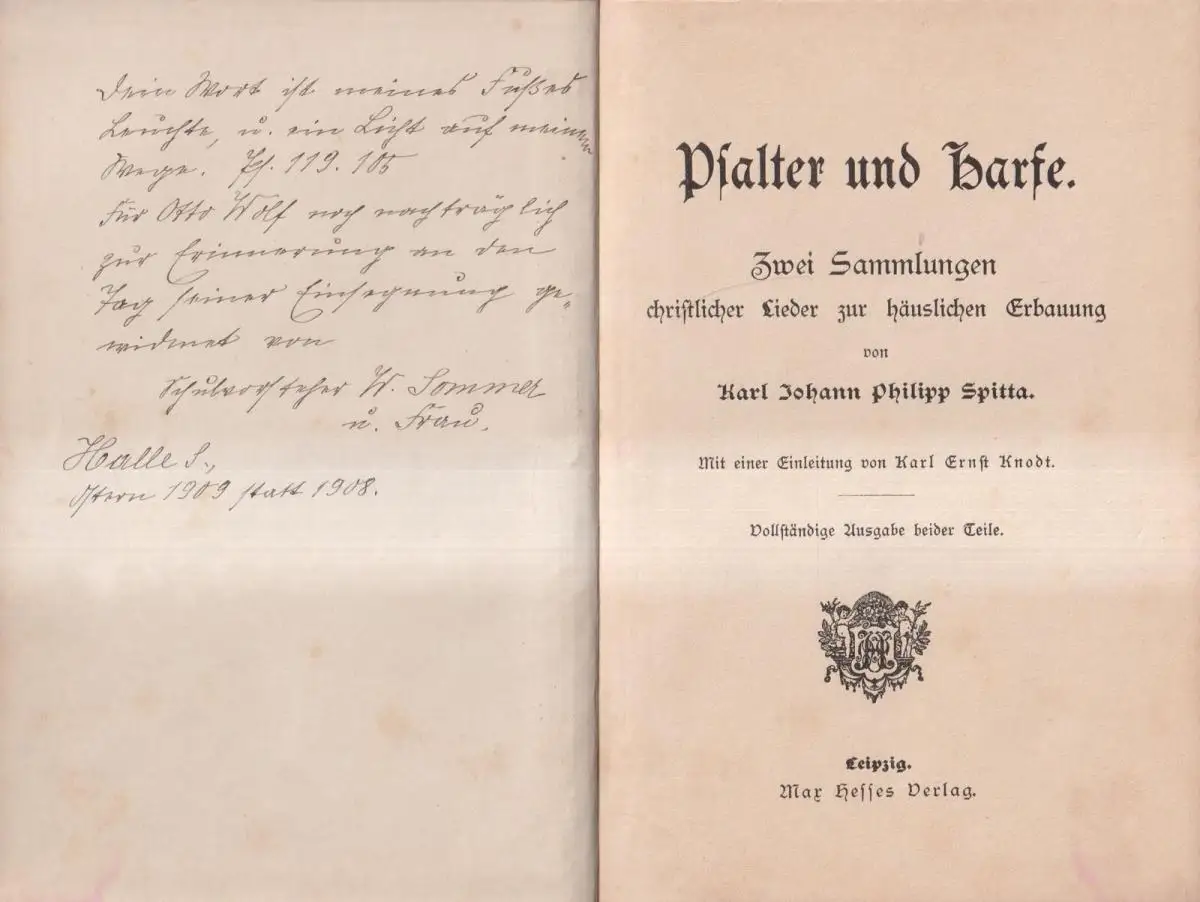 Dein Wort ist meines Fußes
Leuchte, u. ein Licht auf meinem
Wege. Ps. 119. 105
Für Otto Wolf noch nachträglich
zur Erinnerung an den
Tag seiner Einsegnung ge-
widmet von
Schulvorsteher W. Sommer
u. Frau.
Halle S.,
Ostern 1909 statt 1908.
Psalter und Harfe.
Zwei Sammlungen
christlicher Lieder zur häuslichen Erbauung
von
Karl Johann Philipp Spitta.
Mit einer Einleitung von Karl Ernst Knodt.
Vollständige Ausgabe beider Teile.
Leipzig.
Max Hesses Verlag.